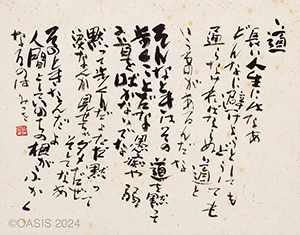 道
長い人生にはなあ
どんなに避けようとしても
通らなければならぬ道と
いうものがあるんだな
そんなときはその道を黙って
歩くことだな 愚痴や弱
音を吐かないでな
黙って歩くんだよ ただ黙って
涙なんか見せちゃダメだぜ そしてなあ
そのときなんだよ
人間としてのいのちの根がふかく
なるのは みつを
©OASIS 2024